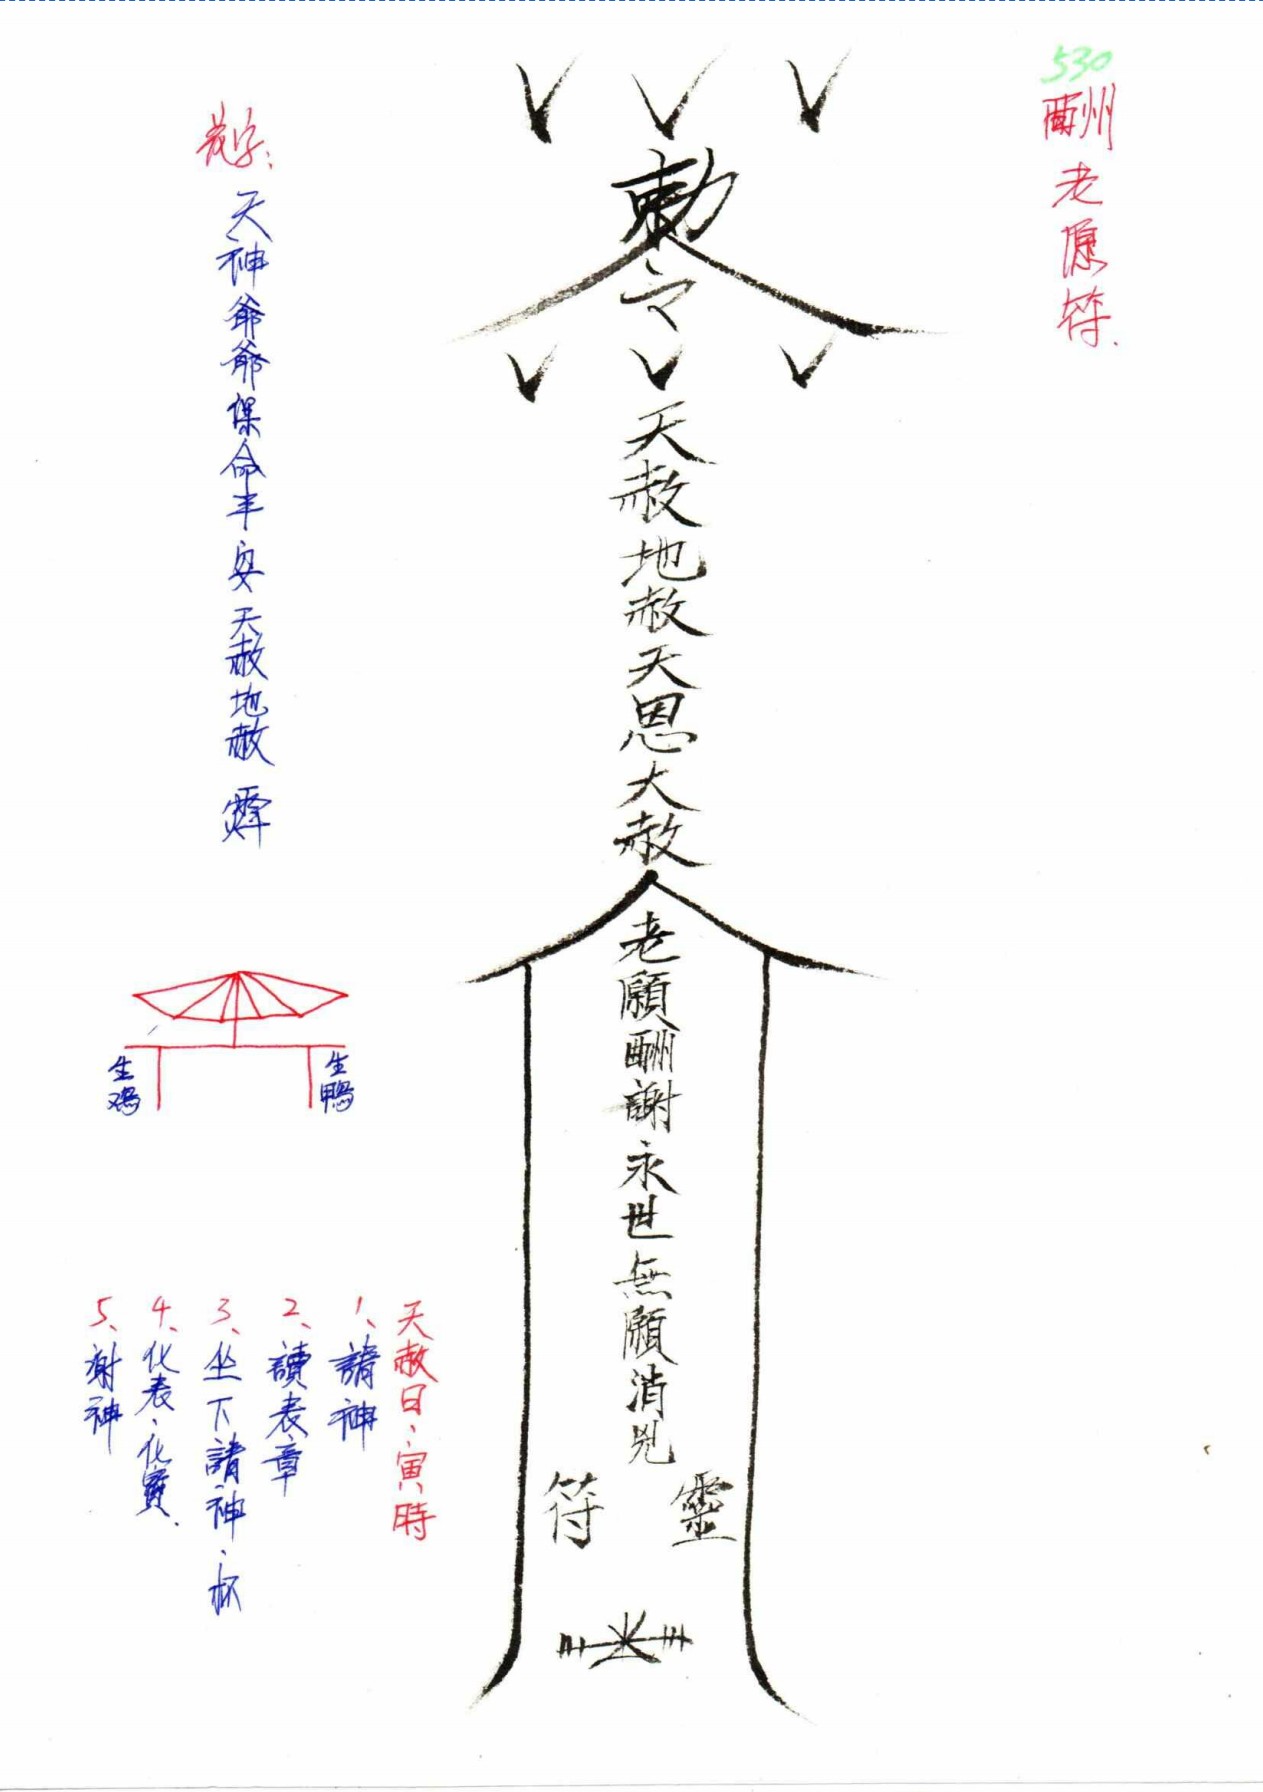 530
酬老愿符.
敕令
天赦地赦天恩大赦
老願酬謝永世無願消
靈
符
花字:
天神爺爺保命平安天赦地赦
生鸡
生鴨
天赦日、寅時
1、請神
2、讀表章
3、坐下請神、杯
4、化表、化寶.
5、謝神